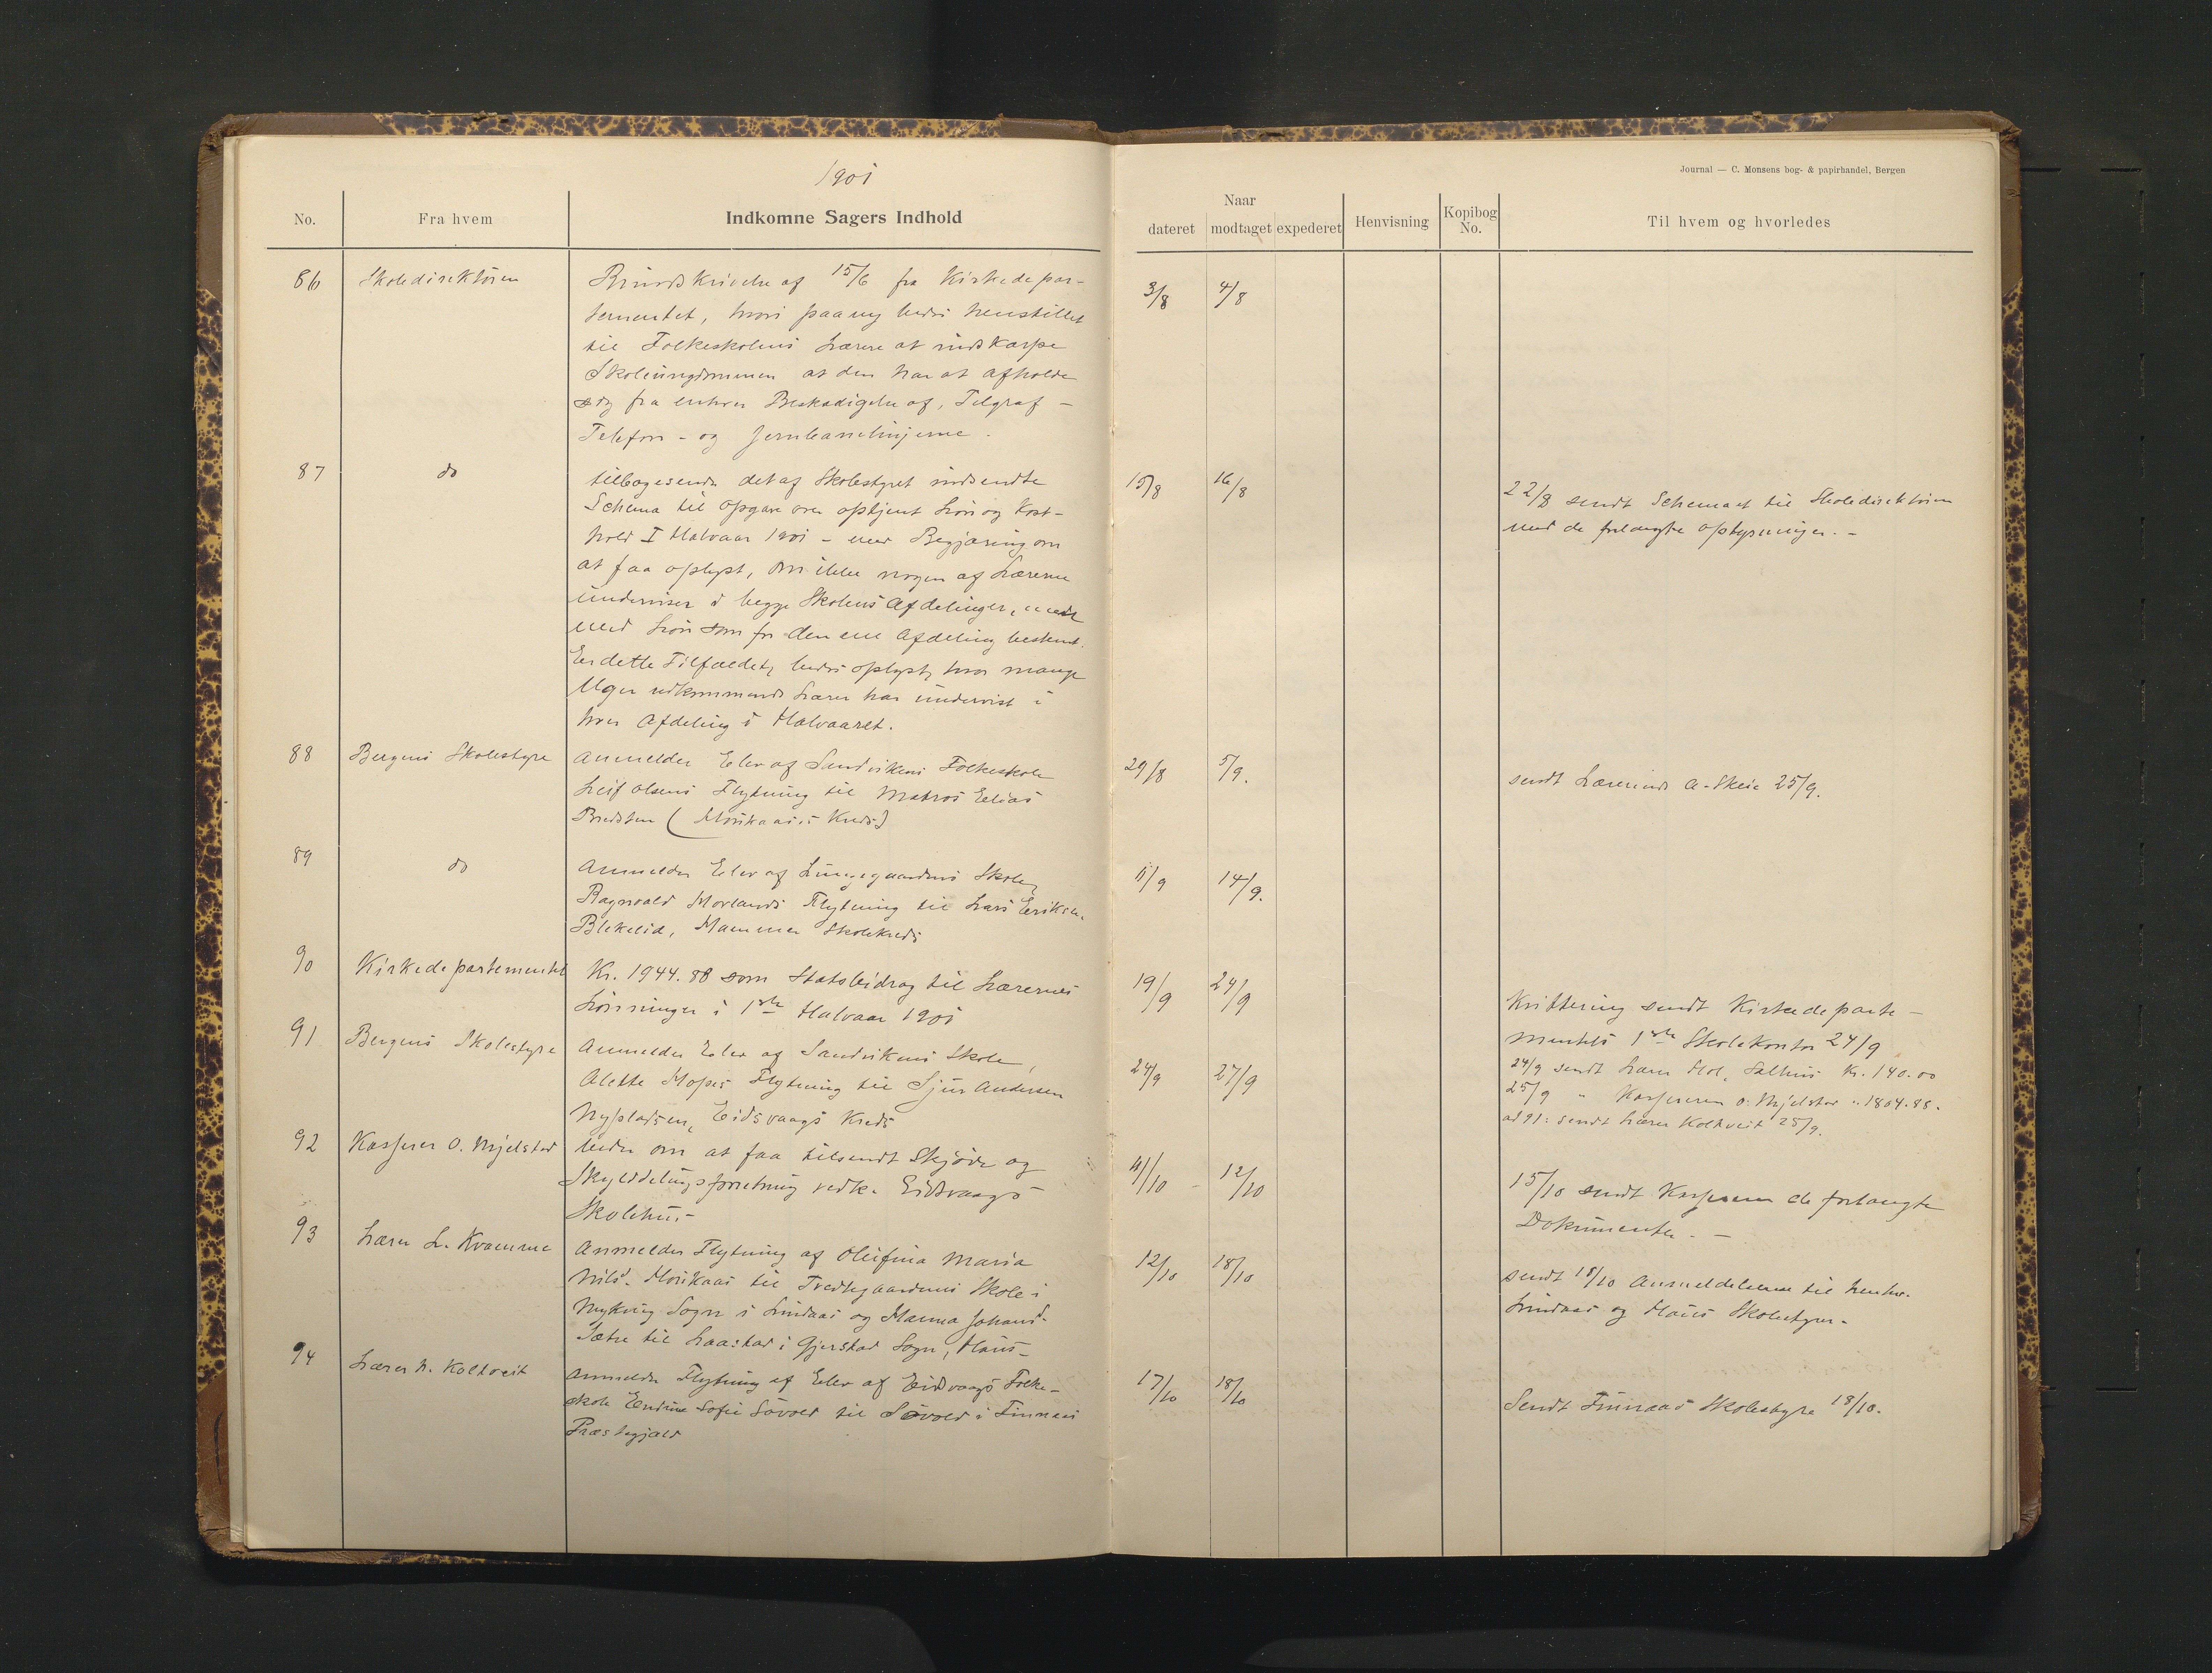 1901
No.
Fra hvem
Indkomne Sagers Indhold
86
Skoledirektören
Rundskrivelse af 15/6 fra Kirkedepar-
tementet, hvori paany bedes henstillet
til Folkeskolens Lærere at indskærpe
Skoleungdommen at den har at afholde
sig fra enhver Beskadigelse af, Telgraf-
Telefon- og Jernbanelinjerne.
87
do
tilbagesender det af Skolestyret indsendte
Schema til Opgave over optjent Løn og Kost-
hold I Halvaar 1901 - med Begjæring om
at faa oplyst, om ikke nogen af Lærerne
underviser i begge Skolens Afdelinger,
med Løn som for den ene Afdeling bestemt.
Er dette Tilfældet, bedes oplyst, hvor mange
Uger vedkommende Lærer har undervist i
hver Afdeling i Halvaaret.
88
Bergens Skolestyre
Anmelder Elev af Sandvikens Folkeskole
Leif Olsens Flytning til Matros Elias
Bredsten (Morikaas's Kreds)
89
do
Anmelder Elev af Lungegaardens Skole,
Ragnvald Morlands Flytning til Lars Eriksen.
Blekelid, Mammen Skolekreds
90
Kirkedepartementet
Kr. 1944.88 som Statsbidrag til Lærernes
Lønninger i 1ste Halvaar 1901
91
Bergens Skolestyre
Anmelder Elev af Sandvikens Skole,
Alette Mopes Flytning til Sjur Andersen
Nypladsen, Eidsvaags Kreds
92
Kasserer O. Mjelstad
beder om at faa tilsendt Skjøde og
Skylddelingsforretning vedk. Eidsvaags
Skolehus-
93
Lærer L. Kvamme
Anmelder Flytning af Olufina Maria
Nilsd. Morikaas til Tredtegaardens Skole i
Myking Sogn i Lindaas og Manna Johansd.
Sætre til Laastad i Gjerstad Sogn, Haus-
94
Lærer N. Koltveit
Anmelder Flytning af Elev af Eidsvaags Folke-
skole Endine Sofie Søvold til Søvold i Finnaas
Præstegjæld
Journal — C. Monsens bog- & papirhandel, Bergen
Naar
dateret
modtaget
expederet
Henvisning
Kopibog
No.
Til hvem og hvorledes
3/8
4/8
15/8
16/8
22/8 sendt Schemaet til Skoledirektören
med de forlangte Oplysninger. -
29/8
5/9.
sendt Lærerinde A. Skeie 25/9.
11/9
14/9.
19/9
24/9
Kvittering sendt Kirkedeparte-
mentets 1ste Skolekontor 24/9
24/9 sendt Lærer Hol, Salhus Kr. 140.00
25/9 " Kassereren O. Mjelstad " 1804.88.
24/9
27/9
ad 91: sendt Lærer Koltveit 25/9.
11/10
12/10
15/10 sendt Kassereren de forlangte
Dokumenter. -
12/10
18/10
sendt 18/10 Anmeldelserne til henhv.
Lindaas og Haus Skolestyrer.
17/10
18/10
Sendt Finnaas Skolestyre 18/10.